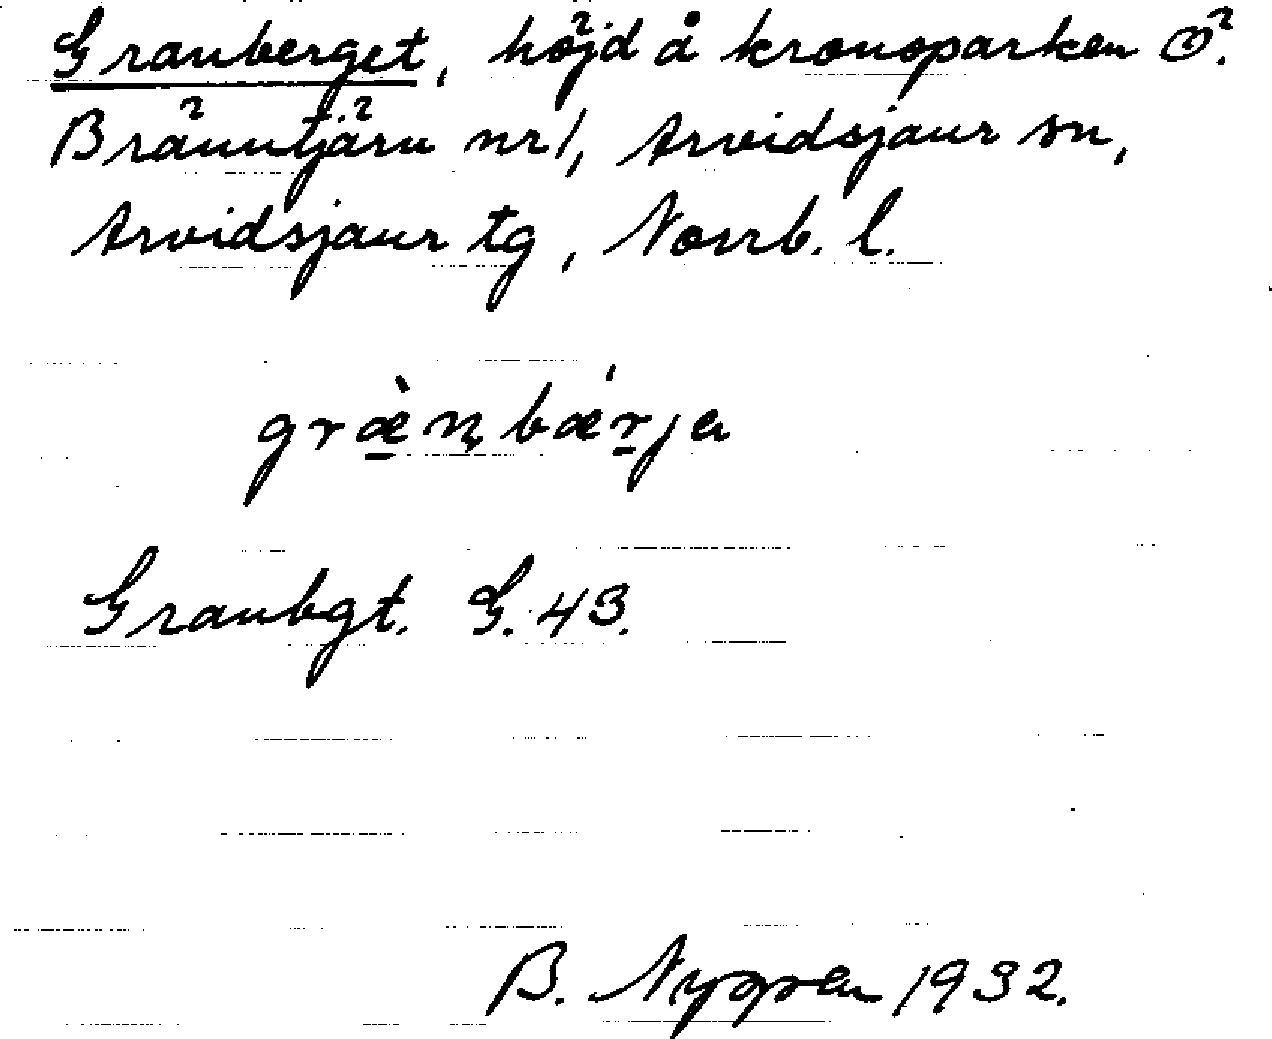 Granberget, höjd å kronoparken Ö.
Bränntjärn nr 1, Arvidsjaur sn,
Arvidsjaur tg, Norrb. l.
græ̀n̥bær̀ja
Granbgt. G. 43.
B. Nygren 1932.